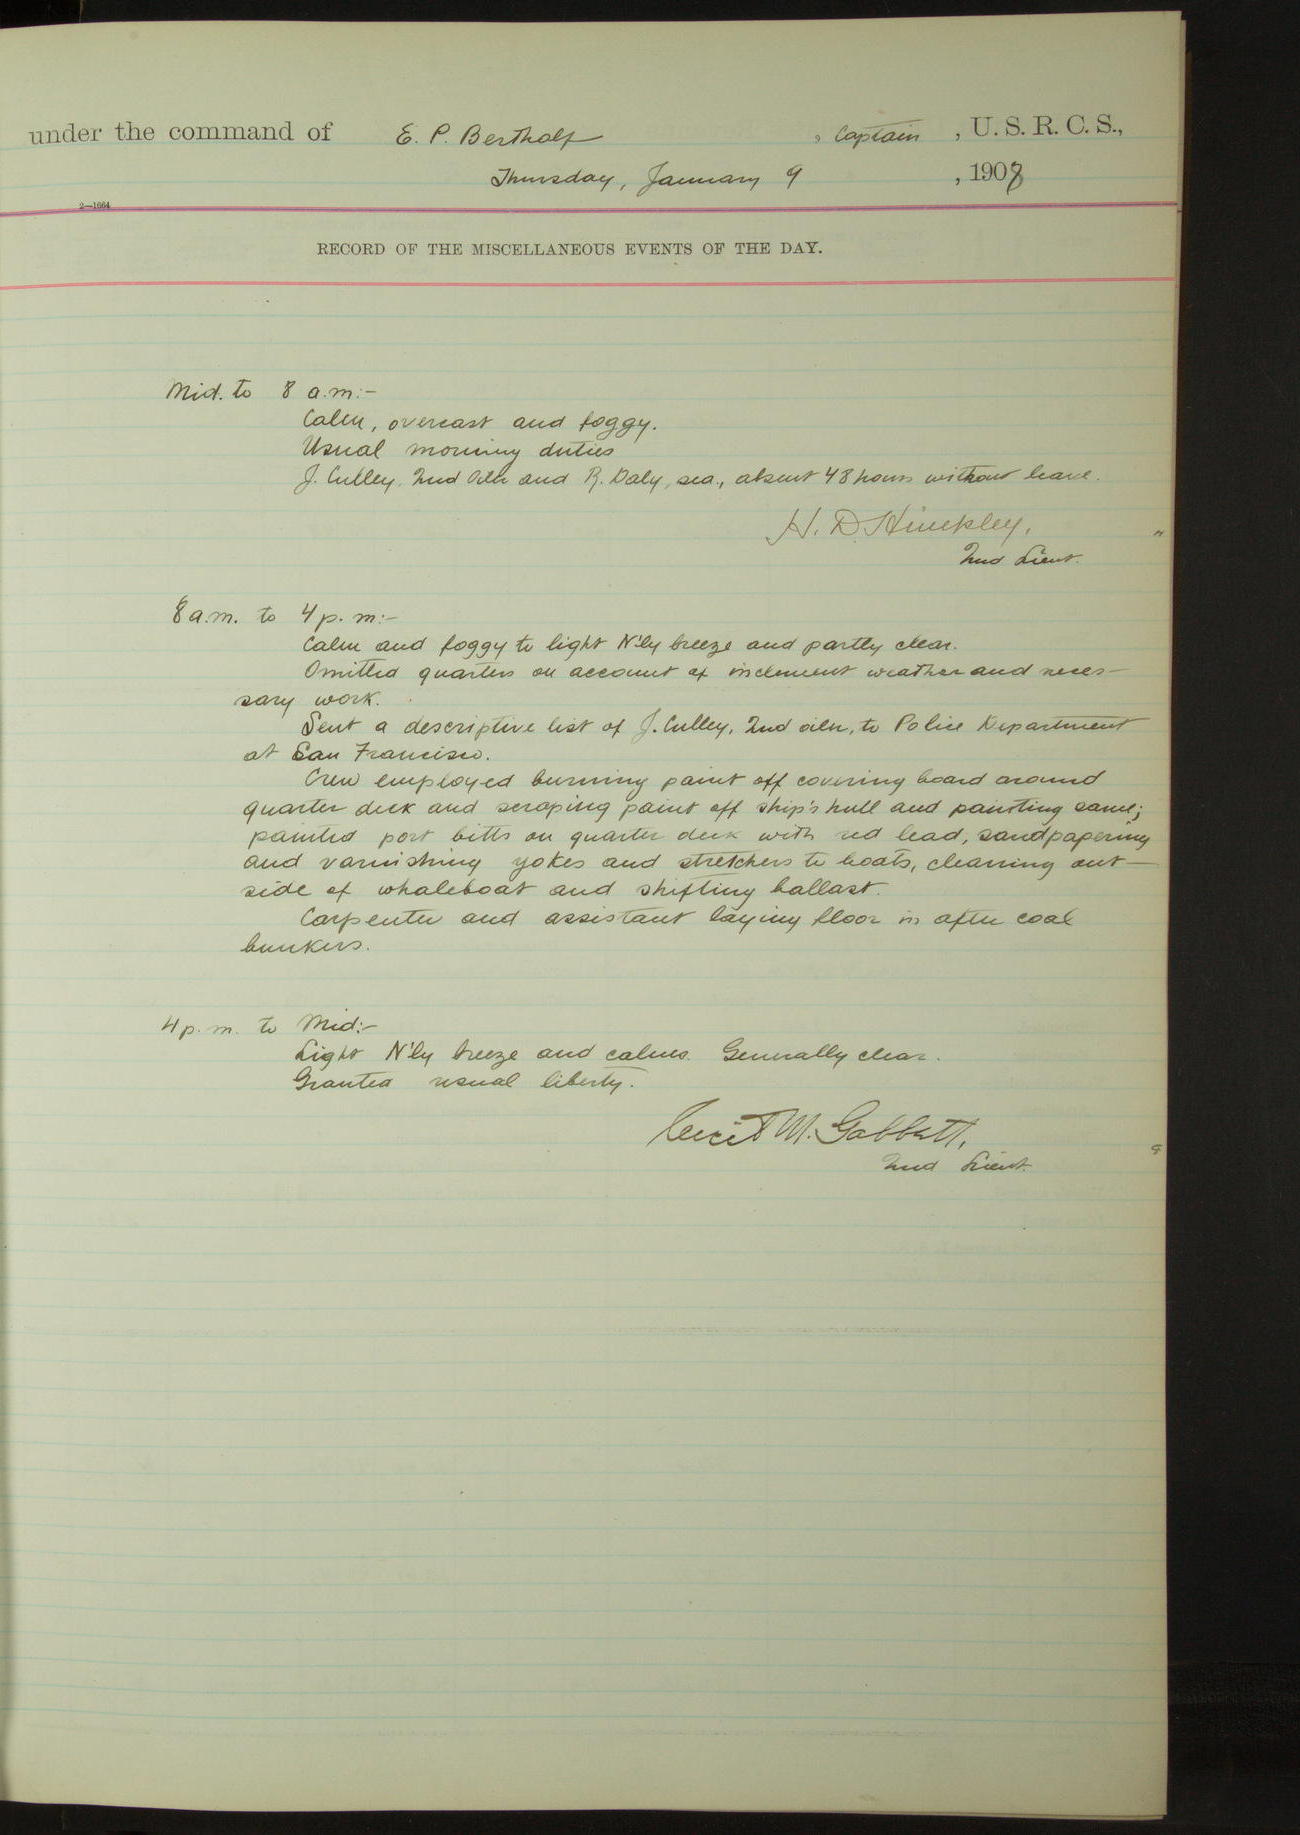 under the command of E. P. Bertholf, Captain, U. S. R. C. S.,
Thursday, January 9, 1908
2—1664
RECORD OF THE MISCELLANEOUS EVENTS OF THE DAY.
Mid. to 8 a.m:-
Calm, overcast and foggy.
Usual morning duties
J. Culley, 2nd Oiler and R. Daly, sea., absent 48 hours without leave.
H. D. Hinckley,
2nd Lieut.
8 a.m. to 4 p. m:-
Calm and foggy to light N'ly breeze and partly clear.
Omitted quarters on account of inclement weather and neces-
sary work.
Sent a descriptive list of J. Culley, 2nd oiler, to Police Department
at San Francisco.
Crew employed burning paint off covering board around
quarter deck and scraping paint off ship's hull and painting same;
painted port bitts on quarter deck with red lead, sandpapering
and varnishing yokes and stretchers to boats, cleaning out-
side of whaleboat and shifting ballast.
Carpenter and assistant laying floor in after coal
bunkers.
4 p. m. to Mid:-
Light N'ly breeze and calms. Generally clear.
Granted usual liberty.
Cecil M. Gabbett,
2nd Lieut.